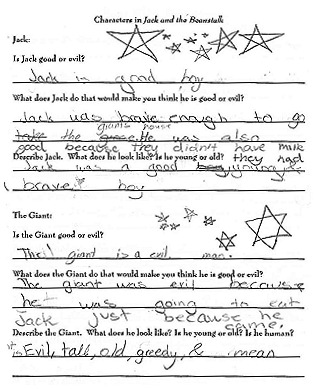 Characters in Jack and the Beanstalk
Jack:
Is Jack good or evil?
Jack is good boy
What does Jack do that would make you think he is good or evil?
Jack was brave enough to go
giants house
take the goose. He was also
good because they didn't have milk
Describe Jack. What does he look like? Is he young or old? they had
Jack was a good young
brave boy
The Giant:
Is the Giant good or evil?
The giant is a evil man.
What does the Giant do that would make you think he is good or evil?
The giant was evil because
he was going to eat
Jack just because he
came.
Describe the Giant. What does he look like? Is he young or old? Is he human?
is Evil, tall, old, greedy, & mean